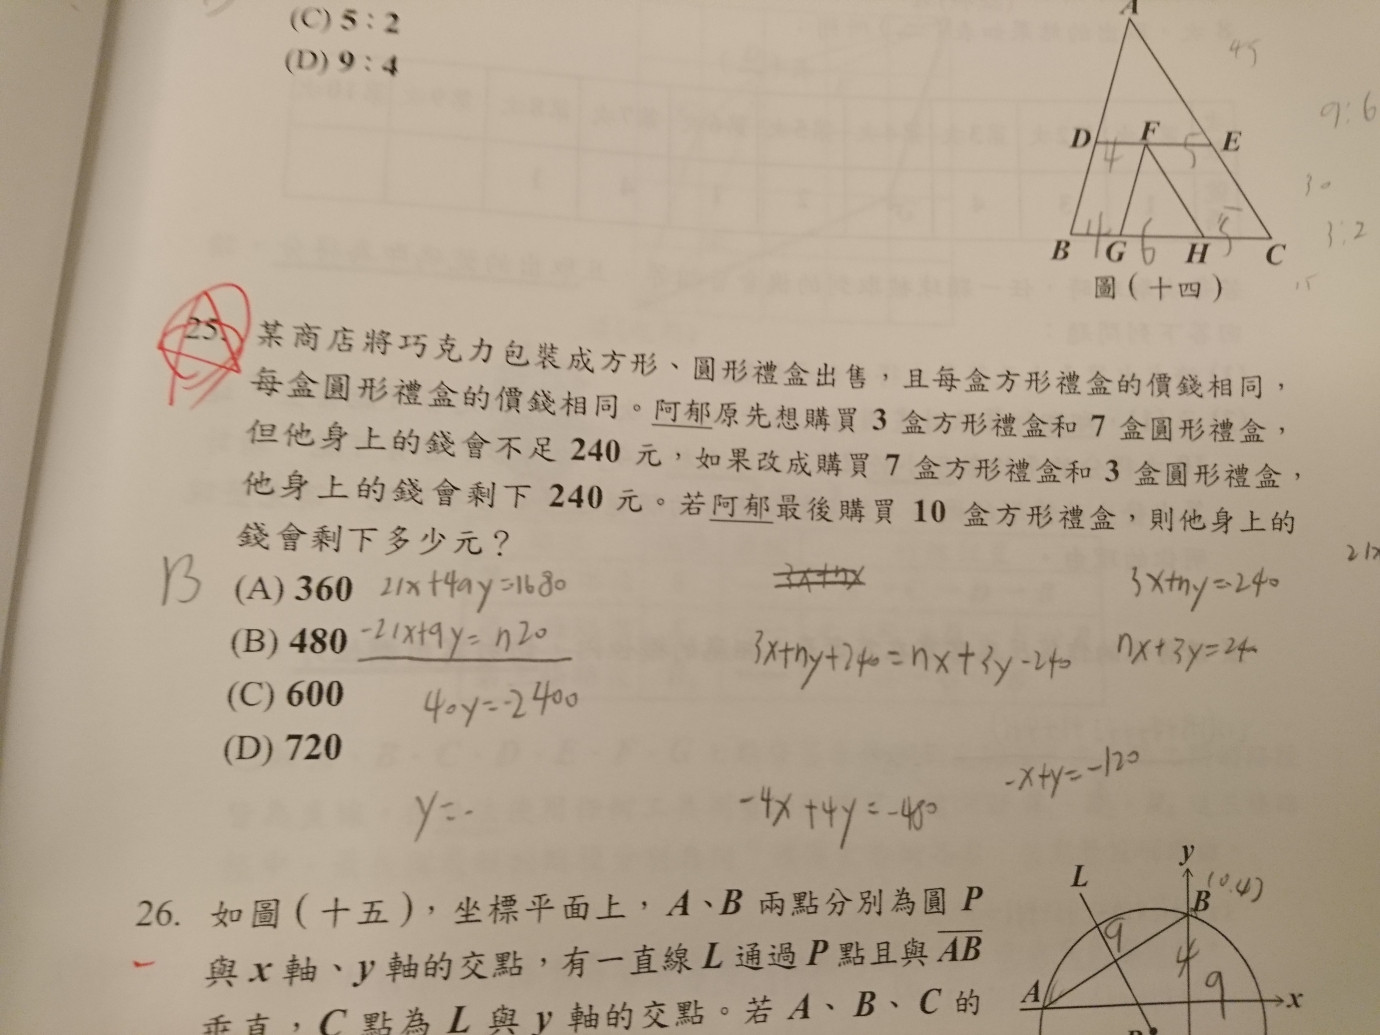 (C) 5：2
(D) 9：4
A
45
9:6
D F E
4 5
30
3:2
B 4 G 6 H 5 C
圖（十四）
15
25. 某商店將巧克力包裝成方形、圓形禮盒出售，且每盒方形禮盒的價錢相同，
每盒圓形禮盒的價錢相同。阿郁原先想購買 3 盒方形禮盒和 7 盒圓形禮盒，
但他身上的錢會不足 240 元，如果改成購買 7 盒方形禮盒和 3 盒圓形禮盒，
他身上的錢會剩下 240 元。若阿郁最後購買 10 盒方形禮盒，則他身上的
錢會剩下多少元？
B
(A) 360 21x+49y=1680
3x+7y=-240
21x
(B) 480 -21x+9y=720
3x+7y+240=7x+3y-240
7x+3y=240
(C) 600
40y=-2400
(D) 720
-x+y=-120
y=-
-4x+4y=-480
26. 如圖（十五），坐標平面上，A、B 兩點分別為圓 P
與 x 軸、y 軸的交點，有一直線 L 通過 P 點且與 AB
垂直，C 點為 L 與 y 軸的交點。若 A、B、C 的
y
L
B (0.4)
9
4
9
A
x